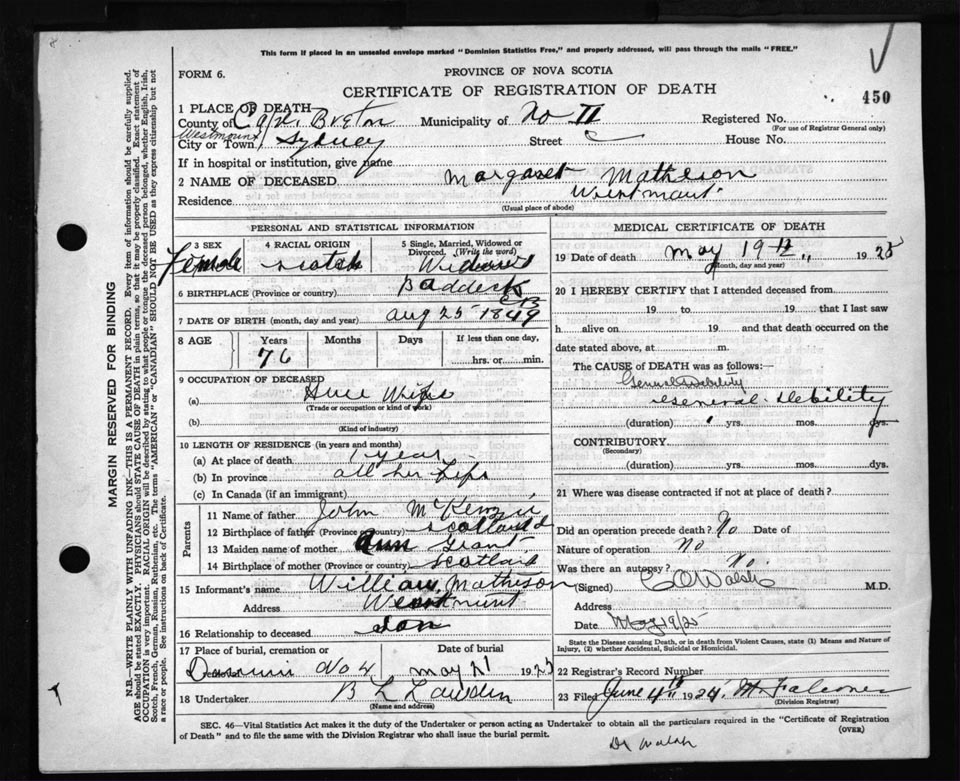 This form if placed in an unsealed envelope marked "Dominion Statistics Free," and properly addressed, will pass through the mails "FREE."
FORM 6.
PROVINCE OF NOVA SCOTIA
CERTIFICATE OF REGISTRATION OF DEATH
450
1 PLACE OF DEATH
County of Cape Breton Municipality of No II Registered No.
(For use of Registrar General only)
Westmount
City or Town Sydney Street House No.
If in hospital or institution, give name
2 NAME OF DECEASED Margaret Matheson
Residence Westmount
(Usual place of abode)
PERSONAL AND STATISTICAL INFORMATION
3 SEX 4 RACIAL ORIGIN 5 Single, Married, Widowed or Divorced. (Write the word)
Female Scotch Widowed
6 BIRTHPLACE (Province or country) Baddeck CB
7 DATE OF BIRTH (month, day and year) Aug 25 1849
8 AGE Years Months Days If less than one day,
76 hrs. or min.
9 OCCUPATION OF DECEASED
(a) House Wife
(Trade or occupation or kind of work)
(b)
(Kind of industry)
10 LENGTH OF RESIDENCE (in years and months)
(a) At place of death 1 year
(b) In province all her Life
(c) In Canada (if an immigrant)
Parents
11 Name of father John McKenzie
12 Birthplace of father (Province or country) Scotland
13 Maiden name of mother Ann Grant
14 Birthplace of mother (Province or country) Scotland
15 Informant's name William Matheson
Address Westmount
16 Relationship to deceased Son
17 Place of burial, cremation or Date of burial
No 4 May 21 1925
18 Undertaker B L
(Name and address)
MEDICAL CERTIFICATE OF DEATH
19 Date of death May 19th 1925
(Month, day and year)
20 I HEREBY CERTIFY that I attended deceased from
19 to 19 that I last saw
h alive on 19 and that death occurred on the
date stated above, at m.
The CAUSE OF DEATH was as follows:—
General Debility
General Debility
(duration) yrs. mos. dys.
CONTRIBUTORY
(Secondary)
(duration) yrs. mos. dys.
21 Where was disease contracted if not at place of death?
Did an operation precede death? No Date of
Nature of operation No
Was there an autopsy? No.
(Signed) Walsh M.D.
Address
Date May 19/25
State the Disease causing Death, or in death from Violent Causes, state (1) Means and Nature of Injury, (2) whether Accidental, Suicidal or Homicidal.
22 Registrar's Record Number
23 Filed June 4th 1924 Falconer
(Division Registrar)
SEC. 46—Vital Statistics Act makes it the duty of the Undertaker or person acting as Undertaker to obtain all the particulars required in the "Certificate of Registration
of Death" and to file the same with the Division Registrar who shall issue the burial permit. (OVER)
Dr Walsh
MARGIN RESERVED FOR BINDING
N.B.—WRITE PLAINLY WITH UNFADING INK—THIS IS A PERMANENT RECORD. Every item of information should be carefully supplied.
AGE should be stated EXACTLY. PHYSICIANS should STATE CAUSE OF DEATH in plain terms, so that it may be properly classified. Exact statement of
OCCUPATION is very important. RACIAL ORIGIN will be described by stating to what people or tongue the deceased person belonged, whether English, Irish,
Scotch, French, German, Russian, Ruthenian, etc. The terms "AMERICAN" or "CANADIAN" SHOULD NOT BE USED as they express citizenship but not
a race or people. See instructions on back of Certificate.